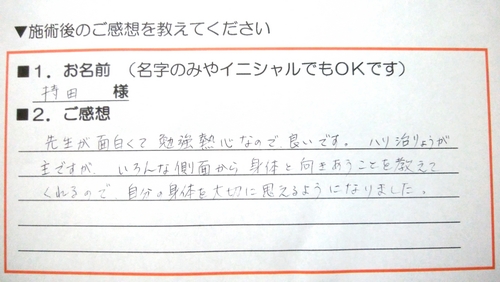 ▼施術後のご感想を教えてください
■1．お名前　（名字のみやイニシャルでもOKです）
持田　様
■2．ご感想
先生が面白くて勉強熱心なので、良いです。ハリ治りょうが
主ですが、いろんな側面から身体と向きあうことを教えて
くれるので、自分の身体を大切に思えるようになりました。